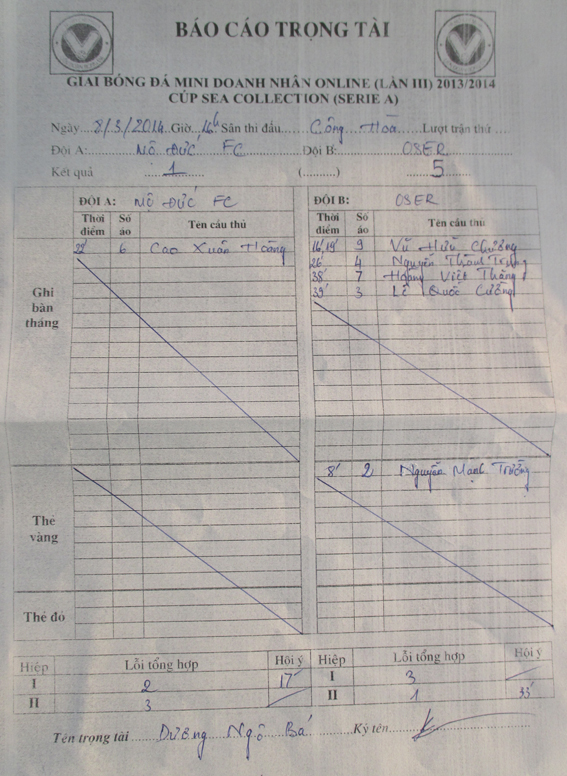 BÁO CÁO TRỌNG TÀI
GIẢI BÓNG ĐÁ MINI DOANH NHÂN ONLINE (LẦN III) 2013/2014
CÚP SEA COLLECTION (SERIE A)
Ngày 8/3/2014 Giờ 16h Sân thi đấu Cộng Hòa Lượt trận thứ
Đội A: NỘ ĐỨC FC Đội B: OSER
Kết quả 1 (..........) 5
ĐỘI A: NỘ ĐỨC FC ĐỘI B: OSER
Thời điểm Số áo Tên cầu thủ Thời điểm Số áo Tên cầu thủ
Ghi bàn thắng
22' 6 Cao Xuân Hoàng 16', 19' 9 Vũ Hữu Chưởng
26' 4 Nguyễn Thành Trung
38' 7 Hoàng Việt Thắng
39' 3 Lê Quốc Cường
Thẻ vàng
8' 2 Nguyễn Mạnh Trường
Thẻ đỏ
Hiệp Lỗi tổng hợp Hội ý Hiệp Lỗi tổng hợp Hội ý
I 2 17' I 3
II 3 II 1 33'
Tên trọng tài Dương Ngô Bá Ký tên